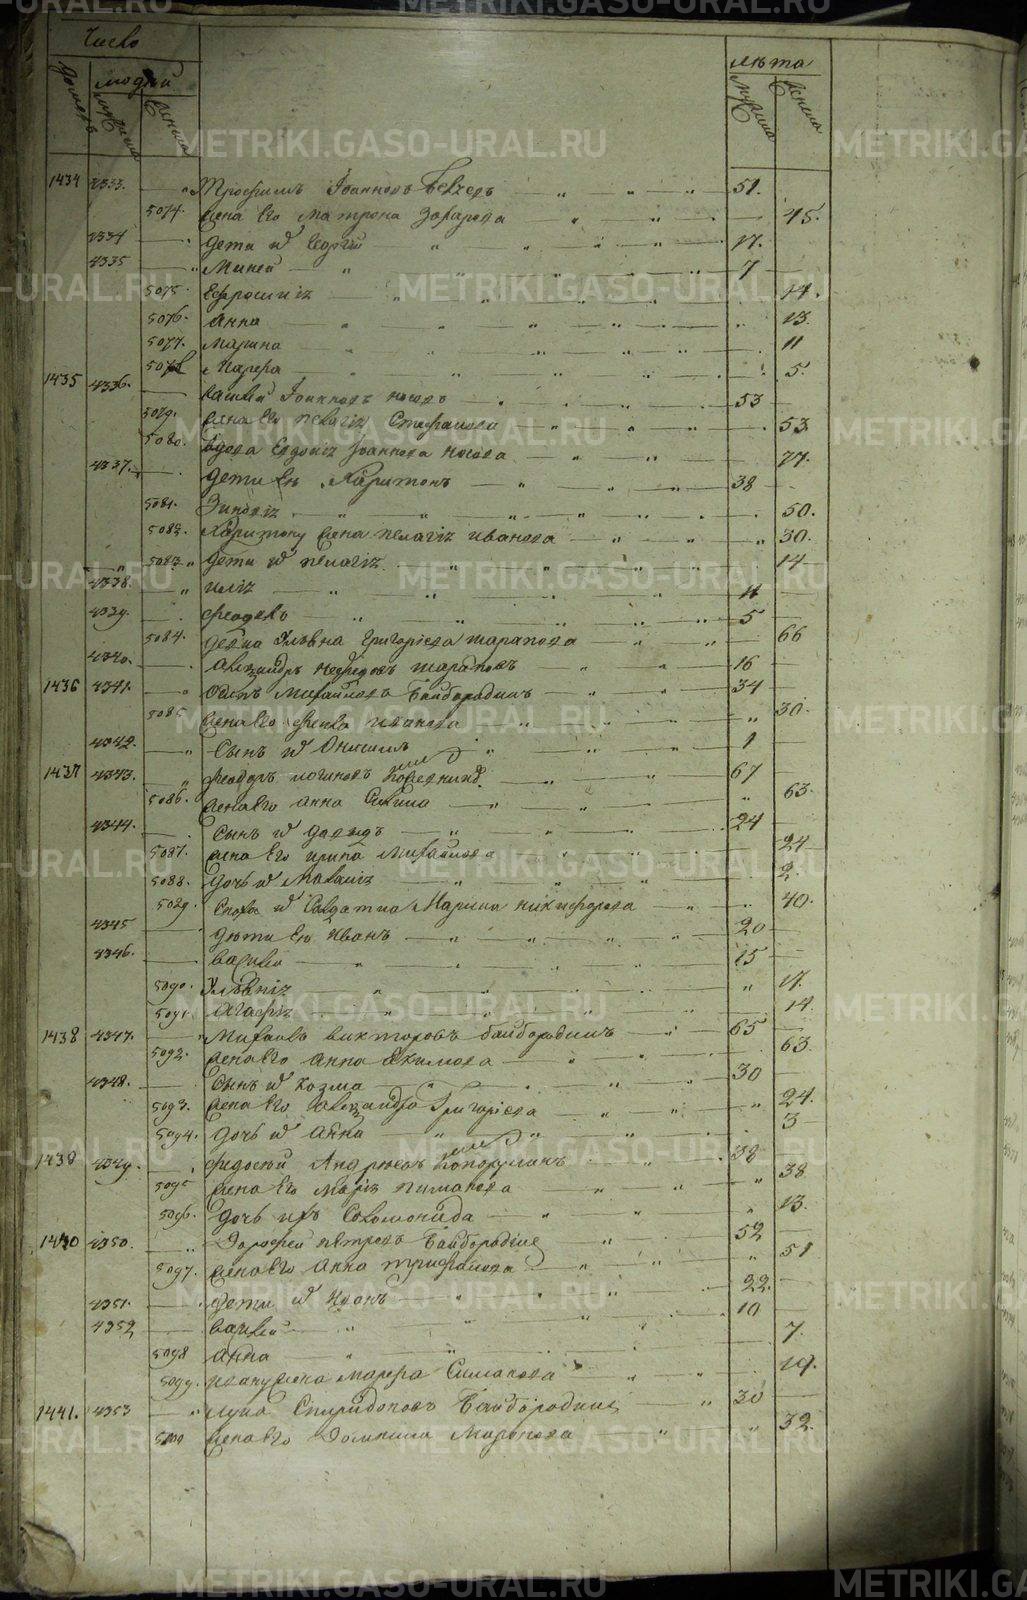 Число
Домовъ
людей
мужеска
женска
лѣта
мужеска
женска
1434 4333. Трофимъ Іоанновъ 51.
5074. жена его Матрона Захарова 45.
4334 дети и͠х Георгій 17.
4335 Миней 7
5075. Ефросинія 14.
5076. Анна 13.
5077. Марина 11
5078 Марѳа 5.
1435 4336. Василей Іоанновъ Носовъ 53
5079. жена его Пелагія Стефанова 53.
5080. вдова Евдокія Іоаннова Носова 77.
4337. дети ея Харитонъ 38
5081. 50.
5082. Харитону жена Пелагія Иванова 30.
5083. дети и͠х Пелагія 14
4338. Илія 11
4339. Ѳеодоръ 5
5084. Григоріева Шарапова 66
4340. Александръ Шараповъ 16
1436 4341. Осипъ Михайловъ Байбородинъ 34
5085. жена его Ѳекла Иванова 30.
4342. Сынъ и͠х Онисимъ 1
1437 4343. Ѳеодоръ Логиновъ 67
5086. жена его Анна 63.
4344. Сынъ и͠х Давидъ 24
5087. жена его Ирина Михайлова 24
5088. Дочь и͠х 2.
5089. Сноха и͠х Солдатка Марина Никифорова 40.
4345 Дѣти ея Иванъ 20
4346. Василей 15
5090. 17.
5091. Агафія 14.
1438 4347. Михаилъ Викторовъ Байбородинъ 65
5092. жена его Анна Екимова 63.
4348. Сынъ и͠х Козма 30
5093. жена его Александра Григоріева 24.
5094. Дочь и͠х Анна 3
1439 4349. Ѳедосей Андреевъ 38
5095 жена его Марія Пиманова 38
5096. Дочь ихъ Соломонида 13.
1440 4350. Дорофей Петровъ Байбородинъ 52
5097. жена его Анна Трифанова 51
4351. Дети и͠х Иванъ 22.
4352 Василей 10
5098 Анна 7.
5099. Ивану жена Марѳа Симанова 19.
1441. 4353 Лука Спиридоновъ Байбородинъ 30
5100 жена его Домнина Миронова 32.
METRIKI.GASO-URAL.RU